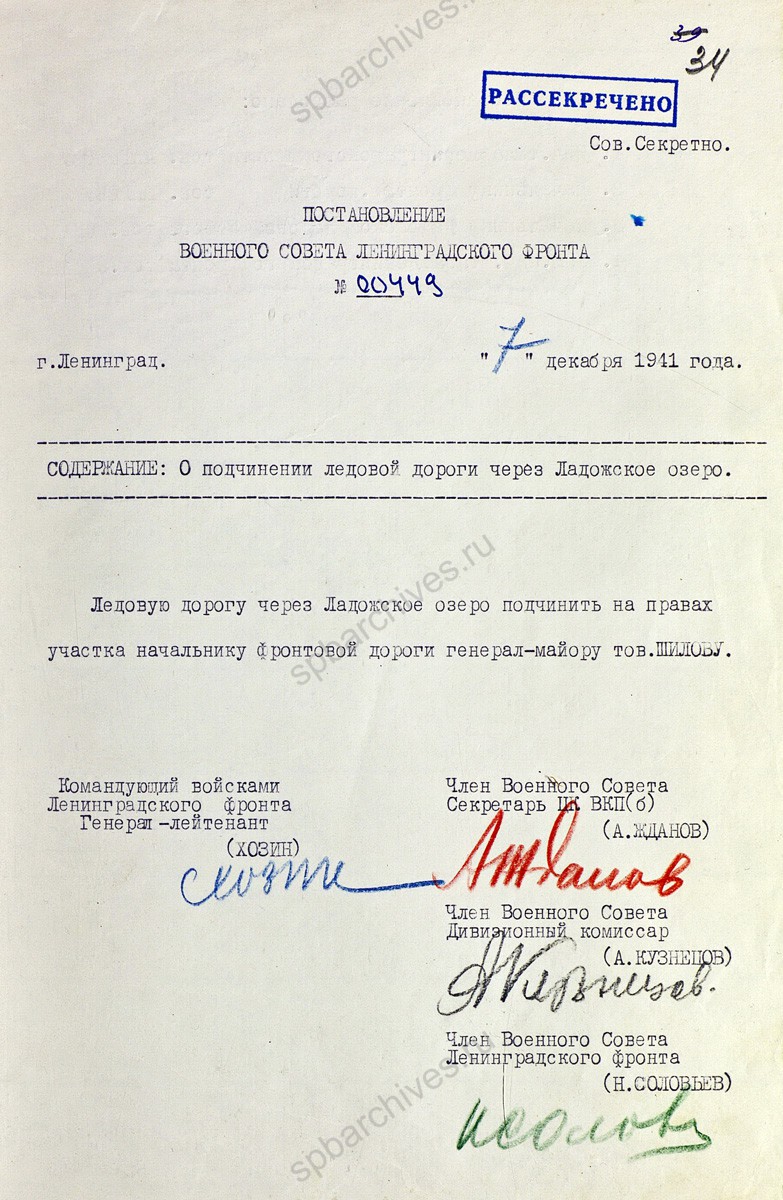 39
34
РАССЕКРЕЧЕНО
Сов.Секретно.
ПОСТАНОВЛЕНИЕ
ВОЕННОГО СОВЕТА ЛЕНИНГРАДСКОГО ФРОНТА
№ 00449
г.Ленинград. "7" декабря 1941 года.
СОДЕРЖАНИЕ: О подчинении ледовой дороги через Ладожское озеро.
Ледовую дорогу через Ладожское озеро подчинить на правах
участка начальнику фронтовой дороги генерал-майору тов.ШИЛОВУ.
Командующий войсками
Ленинградского фронта
Генерал-лейтенант
(ХОЗИН)
Хозин
Член Военного Совета
Секретарь ЦК ВКП(б)
(А.ЖДАНОВ)
А Жданов
Член Военного Совета
Дивизионный комиссар
(А.КУЗНЕЦОВ)
АКузнецов.
Член Военного Совета
Ленинградского фронта
(Н.СОЛОВЬЕВ)
НСолов
spbarchives.ru
spbarchives.ru
spbarchives.ru
spbarchives.ru